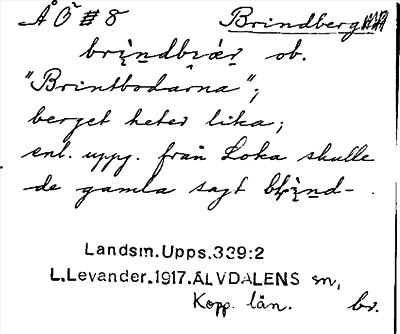 ÅÖ # 8 Brindberg
brı̨ndbıær ob.
"Brintbodarna";
berget heter lika;
enl. uppg. från Loka skulle
de gamla sagt blı̨nd-.
Landsm. Upps. 339:2
L. Levander. 1917. ÄLVDALENS sn,
Kopp. län. br.